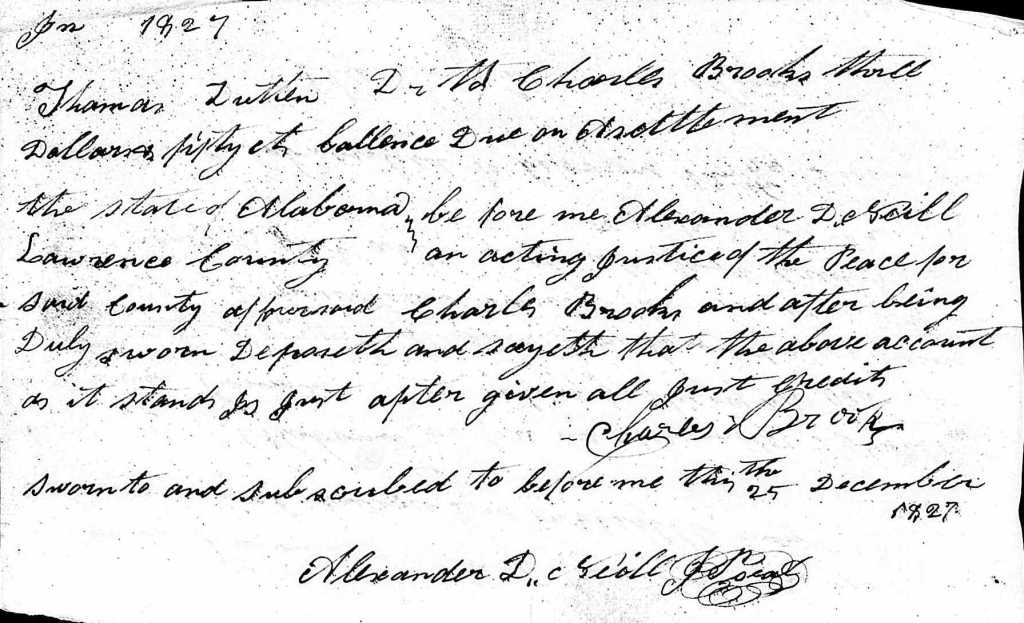 Jn 1827
Thomas Dr to Charles Brooks three
Dollars fifty cts ballence Due on A settlement
the state of Alabama } be fore me Alexander D. McNeill
Lawrence County } an acting Justice of the Peace for
said County appursoud Charles Brooks and after being
Duly sworn Deposeth and sayeth that the above account
as it stands Is Just after given all Just Credits
Charles Brooks
sworn to and subscribed to before me this the 25 December
1827
Alexander D. McNeill J P Seal